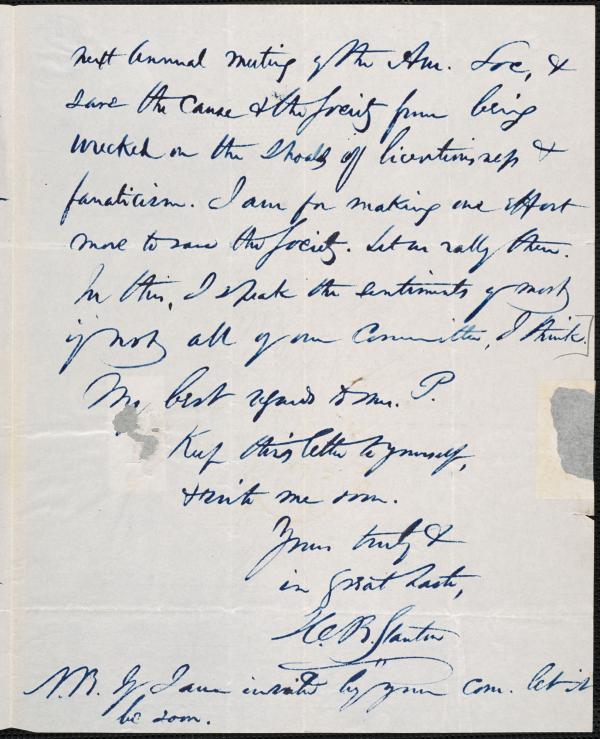 next Annual meeting of the Am. Soc, &
save the cause & the Society from being
wrecked on the shoals of licentiousness &
fanaticism. I am for making one effort
more to save the Society. Let us rally then.
In this, I speak the sentiments of most
if not all of our Committee, I think.]
My best regards to Mrs. P.
Keep this letter to yourself,
& write me soon.
Yours truly &
in great haste,
H. B. Stanton
N.B. If I am invited by your com. let it
be soon.